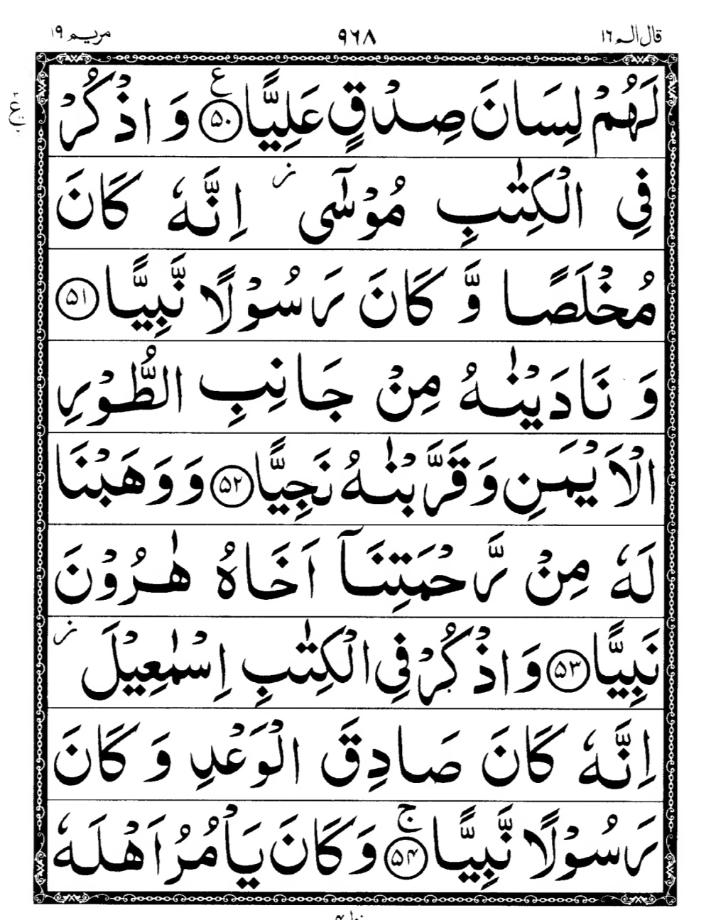 قال الم ١٦
٩٦٨
مريم ١٩
لَهُمْ لِسَانَ صِدْقٍ عَلِيًّا ﴿۵۰﴾ ع وَ اذْكُرْ
ع
فِي الْكِتٰبِ مُوْسٰۤى ز اِنَّهٗ كَانَ
مُخْلَصًا وَّ كَانَ رَسُوْلًا نَّبِيًّا ﴿۵۱﴾
وَ نَادَيْنٰهُ مِنْ جَانِبِ الطُّوْرِ
الْاَيْمَنِ وَقَرَّبْنٰهُ نَجِيًّا ﴿۵۲﴾ وَ وَهَبْنَا
لَهٗ مِنْ رَّحْمَتِنَاۤ اَخَاهُ هٰرُوْنَ
نَبِيًّا ﴿۵۳﴾ وَ اذْكُرْ فِي الْكِتٰبِ اِسْمٰعِيْلَ ز
اِنَّهٗ كَانَ صَادِقَ الْوَعْدِ وَ كَانَ
رَسُوْلًا نَّبِيًّا ﴿۵۴﴾ ج وَ كَانَ يَاْمُرُ اَهْلَهٗ